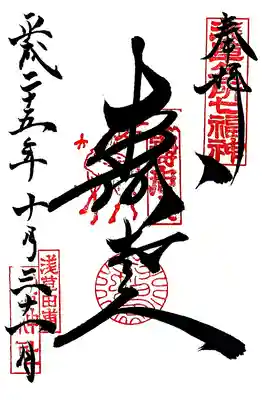 奉拝
浅草名所七福神
壽老人
平成二十五年十月三十一日
浅草田甫